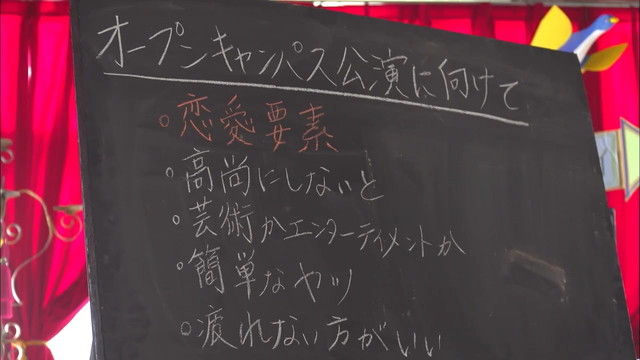 オープンキャンパス公演に向けて
。恋愛要素
。高尚にしないと
。芸術かエンターテイメントか
。簡単なヤツ
。疲れない方がいい